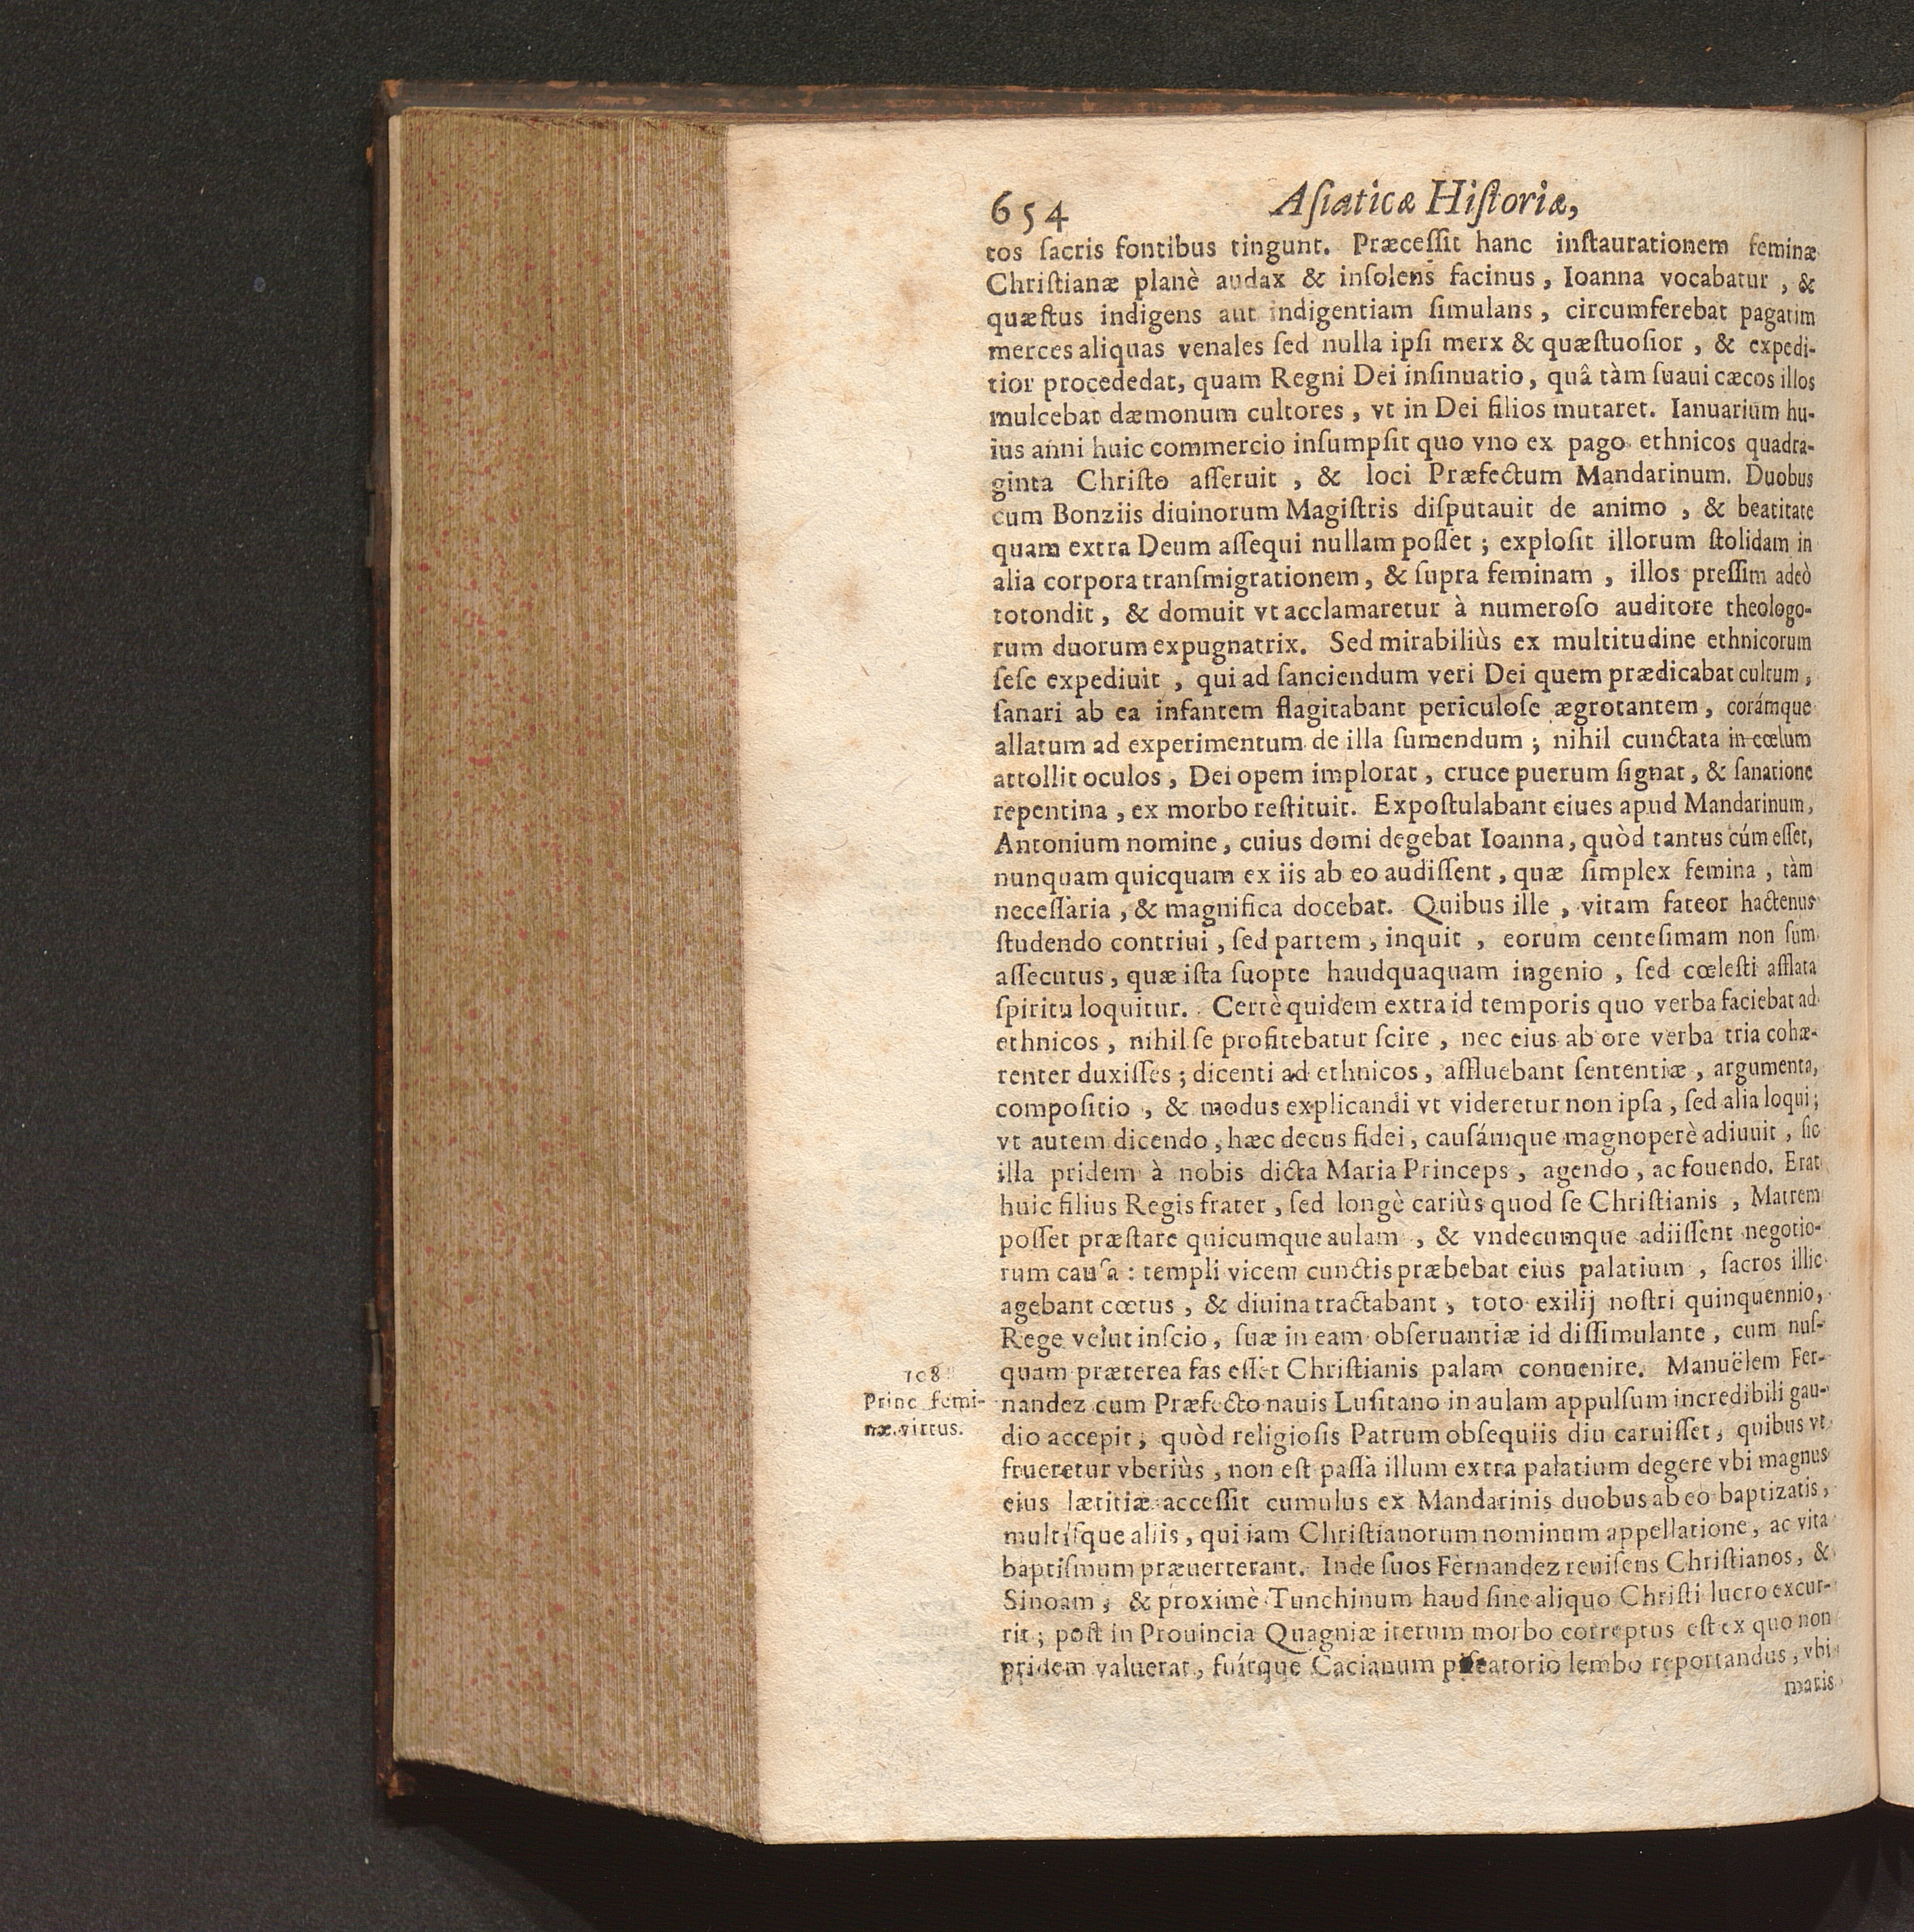 654 Aſiaticæ Hiſtoriæ,
tos ſacris fontibus tingunt. Præceſſit hanc inſtaurationem feminæ
Chriſtianæ planè audax & inſolens facinus, Ioanna vocabatur, &
quæſtus indigens aut indigentiam ſimulans, circumferebat pagatim
merces aliquas venales ſed nulla ipſi merx & quæſtuoſior, & expedi-
tior procededat, quam Regni Dei inſinuatio, quâ tàm ſuaui cæcos illos
mulcebat dæmonum cultores, vt in Dei filios mutaret. Ianuarium hu-
ius anni huic commercio inſumpſit quo vno ex pago ethnicos quadra-
ginta Chriſto aſſeruit, & loci Præfectum Mandarinum. Duobus
cum Bonziis diuinorum Magiſtris diſputauit de animo, & beatitate
quam extra Deum aſſequi nullam poſſet; exploſit illorum ſtolidam in
alia corpora tranſmigrationem, & ſupra feminam, illos preſſim adeò
totondit, & domuit vt acclamaretur à numeroſo auditore theologo-
rum duorum expugnatrix. Sed mirabiliùs ex multitudine ethnicorum
ſeſe expediuit, qui ad ſanciendum veri Dei quem prædicabat cultum,
ſanari ab ea infantem flagitabant periculoſe ægrotantem, corámque
allatum ad experimentum de illa ſumendum; nihil cunctata in cœlum
attollit oculos, Dei opem implorat, cruce puerum ſignat, & ſanatione
repentina, ex morbo reſtituit. Expoſtulabant ciues apud Mandarinum,
Antonium nomine, cuius domi degebat Ioanna, quòd tantus cúm eſſet,
nunquam quicquam ex iis ab eo audiſſent, quæ ſimplex femina, tàm
neceſſaria, & magnifica docebat. Quibus ille, vitam fateor hactenus
ſtudendo contriui, ſed partem, inquit, eorum centeſimam non ſum
aſſecutus, quæ iſta ſuopte haudquaquam ingenio, ſed cœleſti afflata
ſpiritu loquitur. Certè quidem extra id temporis quo verba faciebat ad
ethnicos, nihil ſe profitebatur ſcire, nec eius ab ore verba tria cohæ-
renter duxiſſes; dicenti ad ethnicos, affluebant ſententiæ, argumenta,
compoſitio, & modus explicandi vt videretur non ipſa, ſed alia loqui;
vt autem dicendo, hæc decus fidei, cauſámque magnoperè adiuuit, ſic
illa pridem à nobis dicta Maria Princeps, agendo, ac fouendo. Erat
huic filius Regis frater, ſed longè cariùs quod ſe Chriſtianis, Matrem
poſſet præſtare quicumque aulam, & vndecumque adiiſſent negotio-
rum cauſa: templi vicem cunctis præbebat eius palatium, ſacros illic
agebant cœtus, & diuina tractabant, toto exilij noſtri quinquennio,
Rege velut inſcio, ſuæ in eam obſeruantiæ id diſſimulante, cum nuſ-
quam præterea fas eſſet Chriſtianis palam conuenire. Manuëlem Fer-
nandez cum Præfecto nauis Luſitano in aulam appulſum incredibili gau-
dio accepit; quòd religioſis Patrum obſequiis diu caruiſſet, quibus vt
frueretur vberiùs, non eſt paſſa illum extra palatium degere vbi magnus
eius lætitiæ acceſſit cumulus ex Mandarinis duobus ab eo baptizatis,
multíſque aliis, qui iam Chriſtianorum nominum appellatione, ac vita
baptiſmum præuerterant. Inde ſuos Fernandez reuiſens Chriſtianos, &
Sinoam, & proximè Tunchinum haud ſine aliquo Chriſti lucro excur-
rit; poſt in Prouincia Quagniæ iterum morbo correptus eſt ex quo non
pridem valuerat, fuítque Cacianum piſcatorio lembo reportandus, vbi
maris
108
Princ femi-
næ virtus.